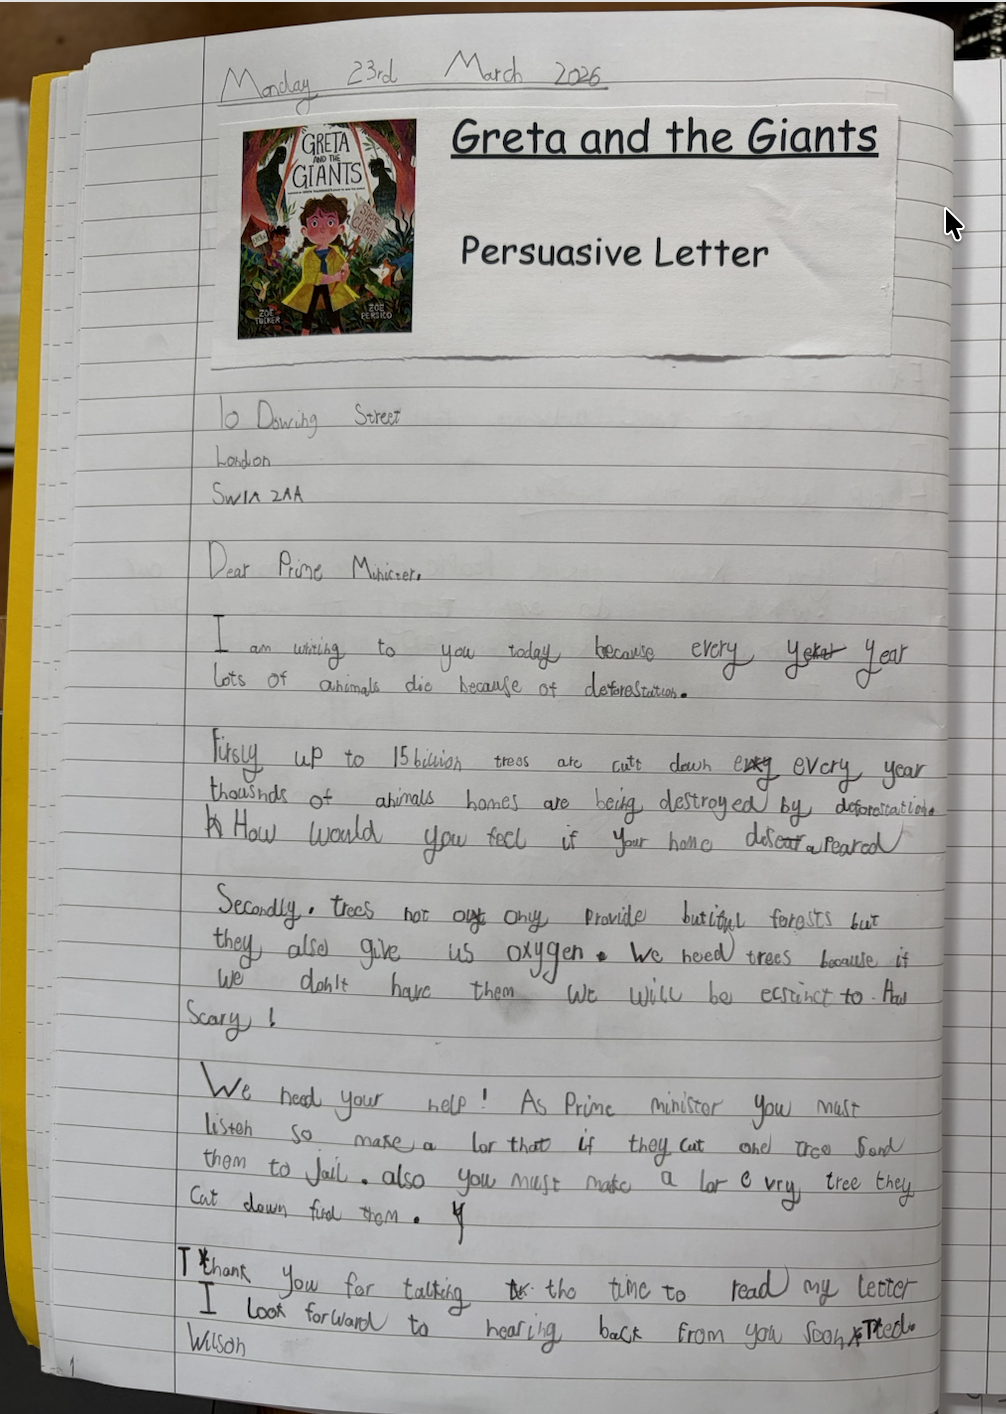 Monday 23rd March 2026
GRETA
AND THE
GIANTS
ZOË
TUCKER
ZOE
PERSICO
Greta and the Giants
Persuasive Letter
10 Dowing Street
London
SW1A 2AA
Dear Prime Minicter,
I am writing to you today because every year
lots of animals die because of deforestation.
Firsly up to 15 billion trees are cutt down every year
thousnds of animals homes are being destroyed by deforestation.
How would you feel if your home diseapeared
Secondly. trees not only provide butiful forests but
they also give us oxygen. We need trees because if
we don't have them we will be ecstinct to. How
Scary!
We need your help! As Prime minister you must
listen so make a lor that if they cut one tree Send
them to Jail. also you must make a lor evry tree they
cut down find them.
Thank you for talking the time to read my letter
I look forward to hearing back from you soon Ted.
Wilson
1